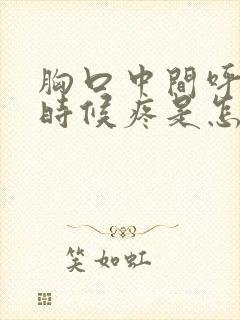 胸口中間呼
時候疼是怎
笑如虹